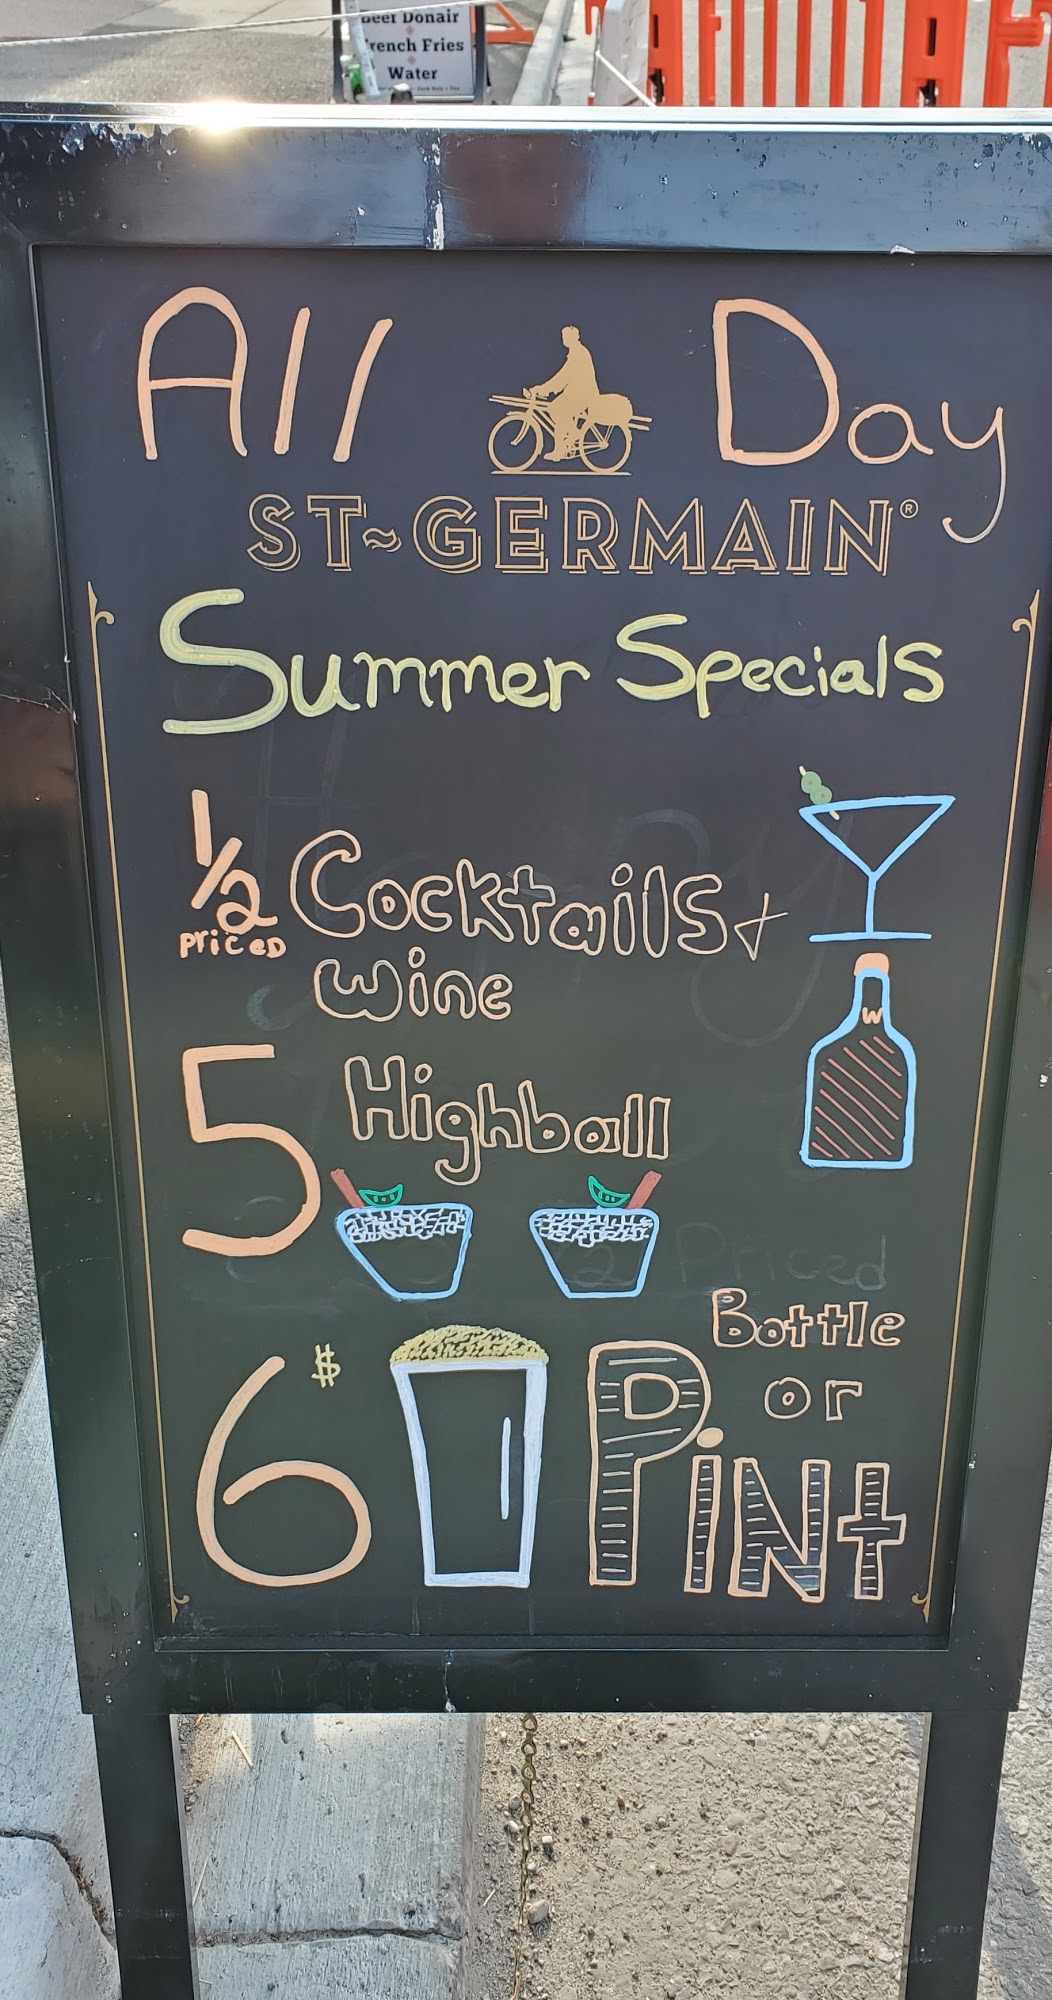 Beef Donair
French Fries
Water
All Day
ST~GERMAIN®
Summer Specials
1/2 Cocktails +
priced
wine
5 Highball
W
Bottle
6 $ Pint or
Priced